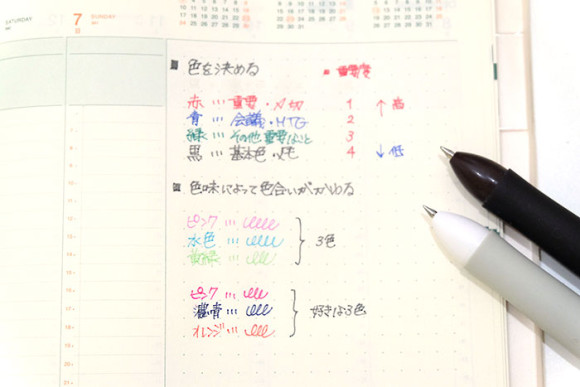 SATURDAY
7
SUNDAY
日
■ 色を決める
■ 重要度
赤 … 重要・〆切 1 ↑高
青 … 会議・MTG 2
緑 … その他重要なこと 3
黒 … 基本色・メモ 4 ↓低
■ 色味によって色合いがかわる
ピンク …
水色 … 3色
黄緑 …
ピンク …
濃青 … 好きな3色
オレンジ …